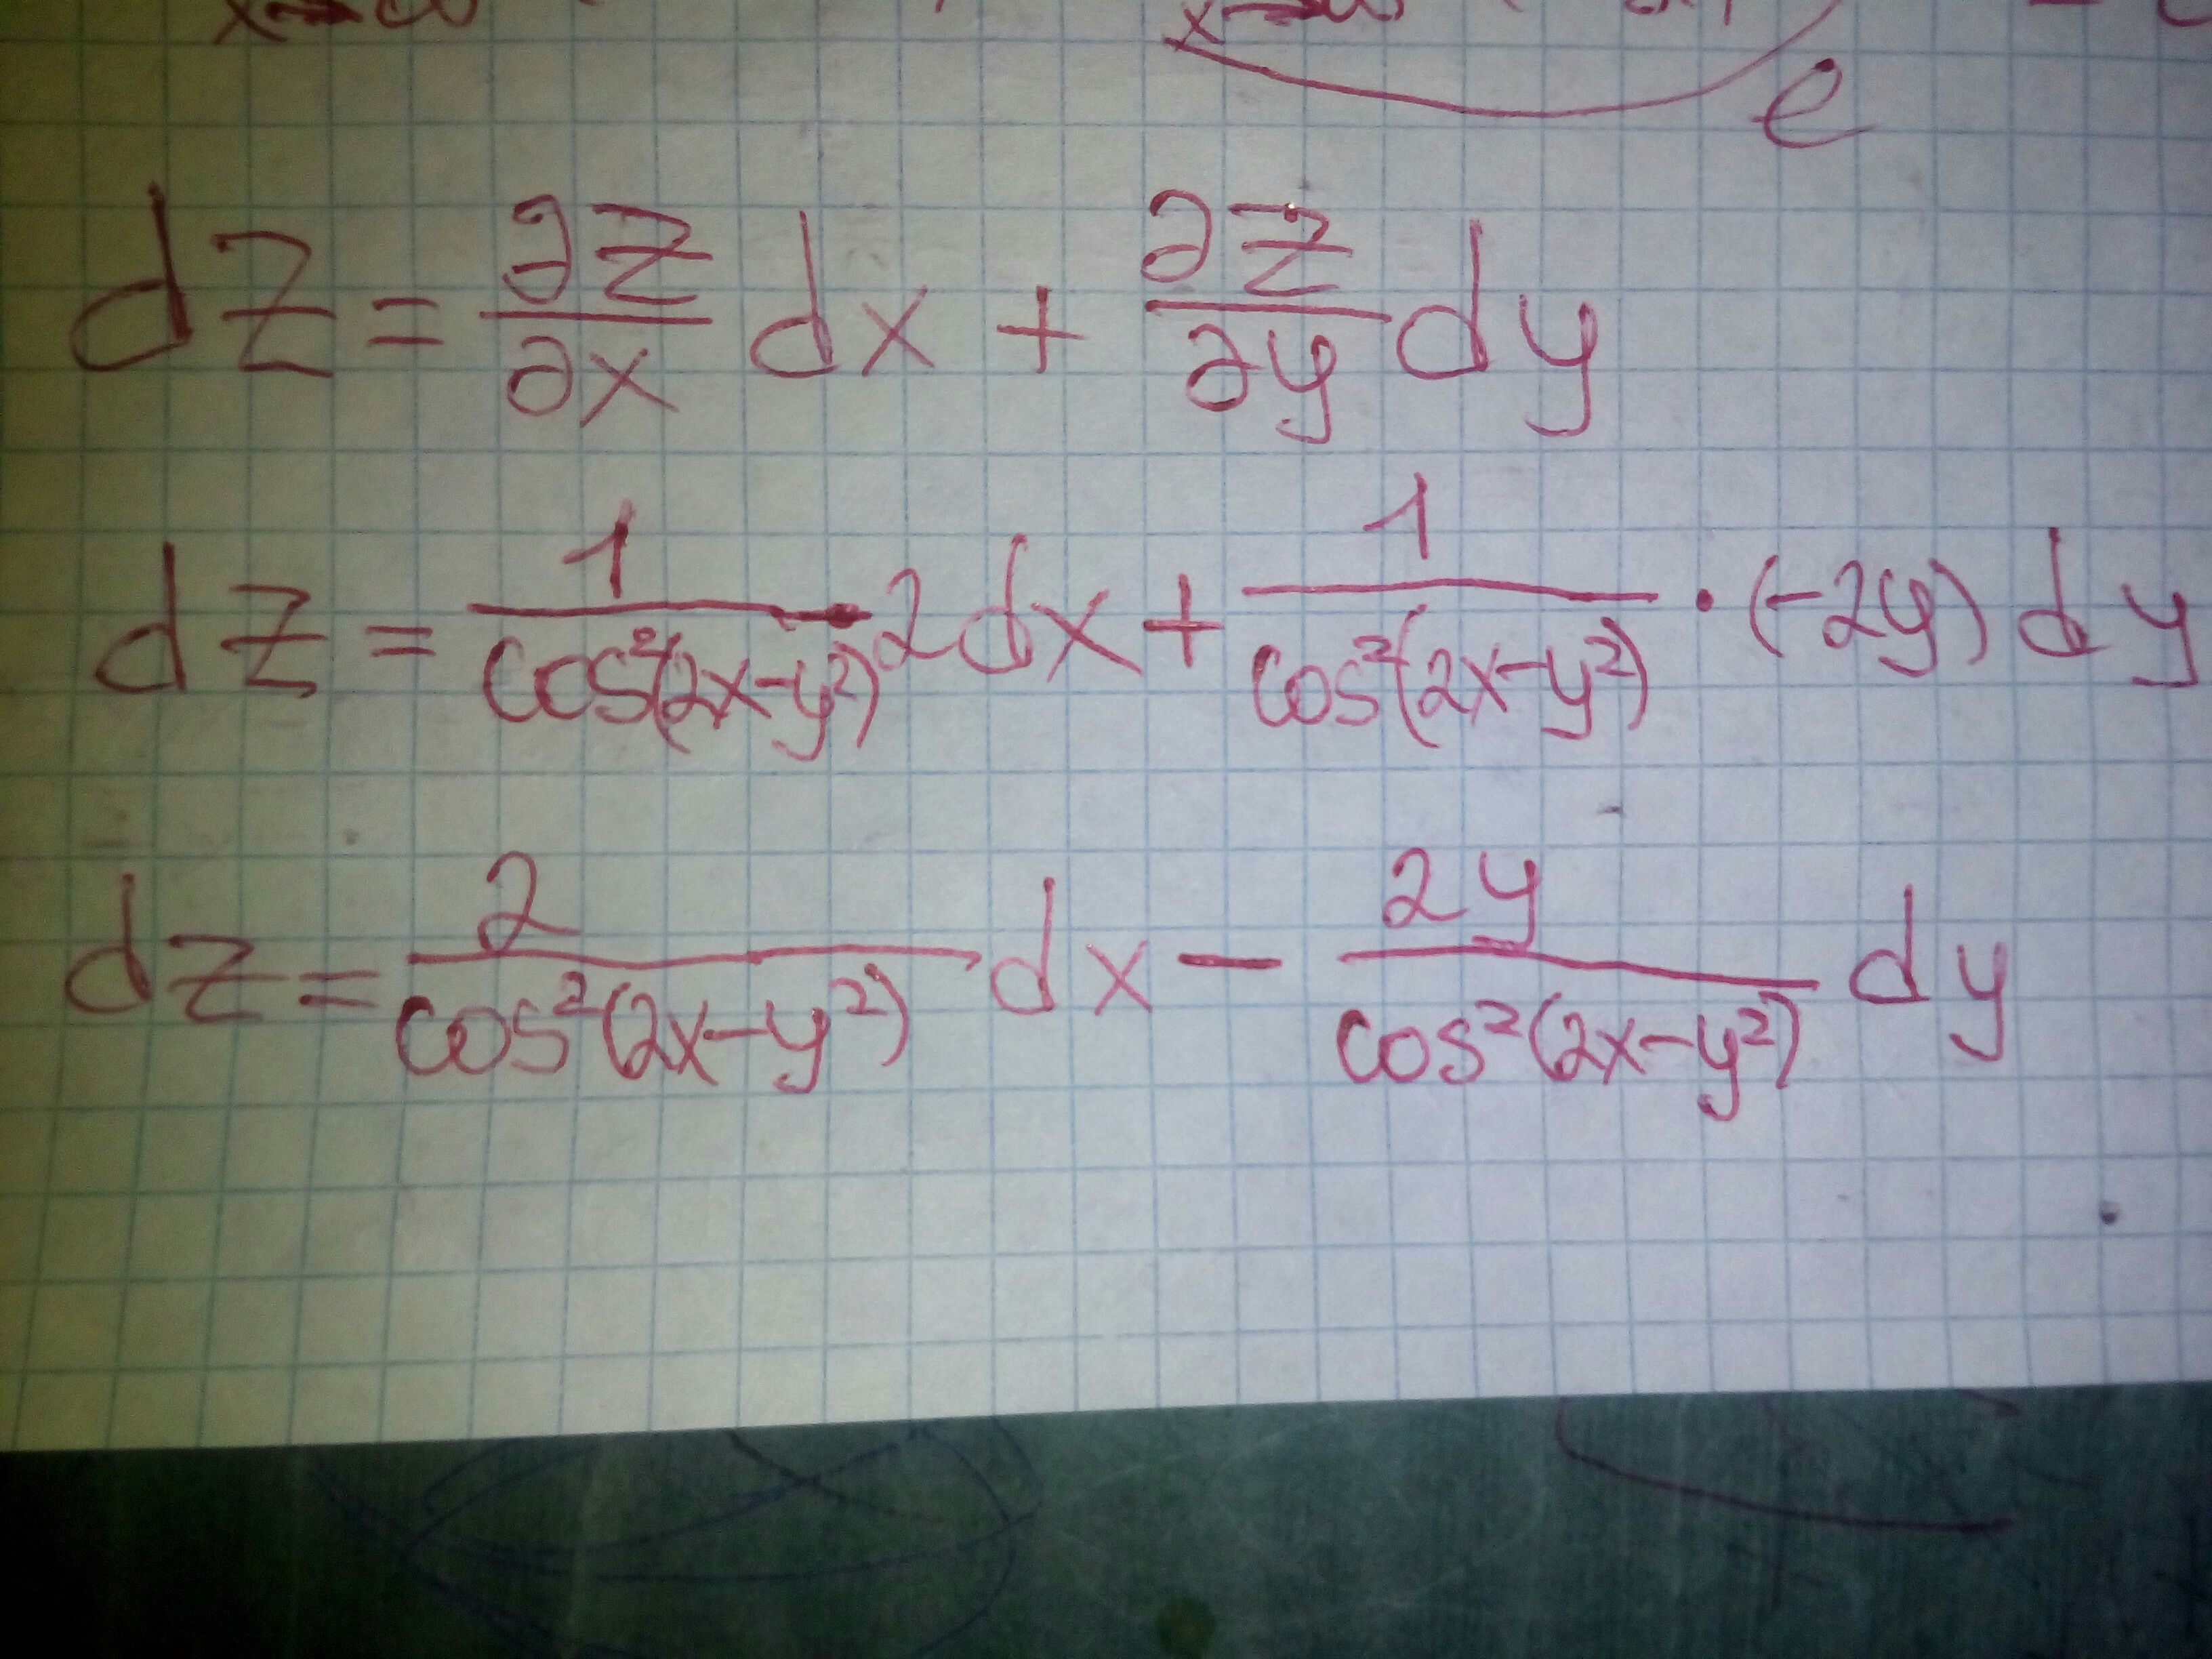 x→∞ x→∞
e
dz = ∂z/∂x dx + ∂z/∂y dy
dz = 1/cos²(2x-y²) · 2dx + 1/cos²(2x-y²) · (-2y) dy
dz = 2/cos²(2x-y²) dx - 2y/cos²(2x-y²) dy